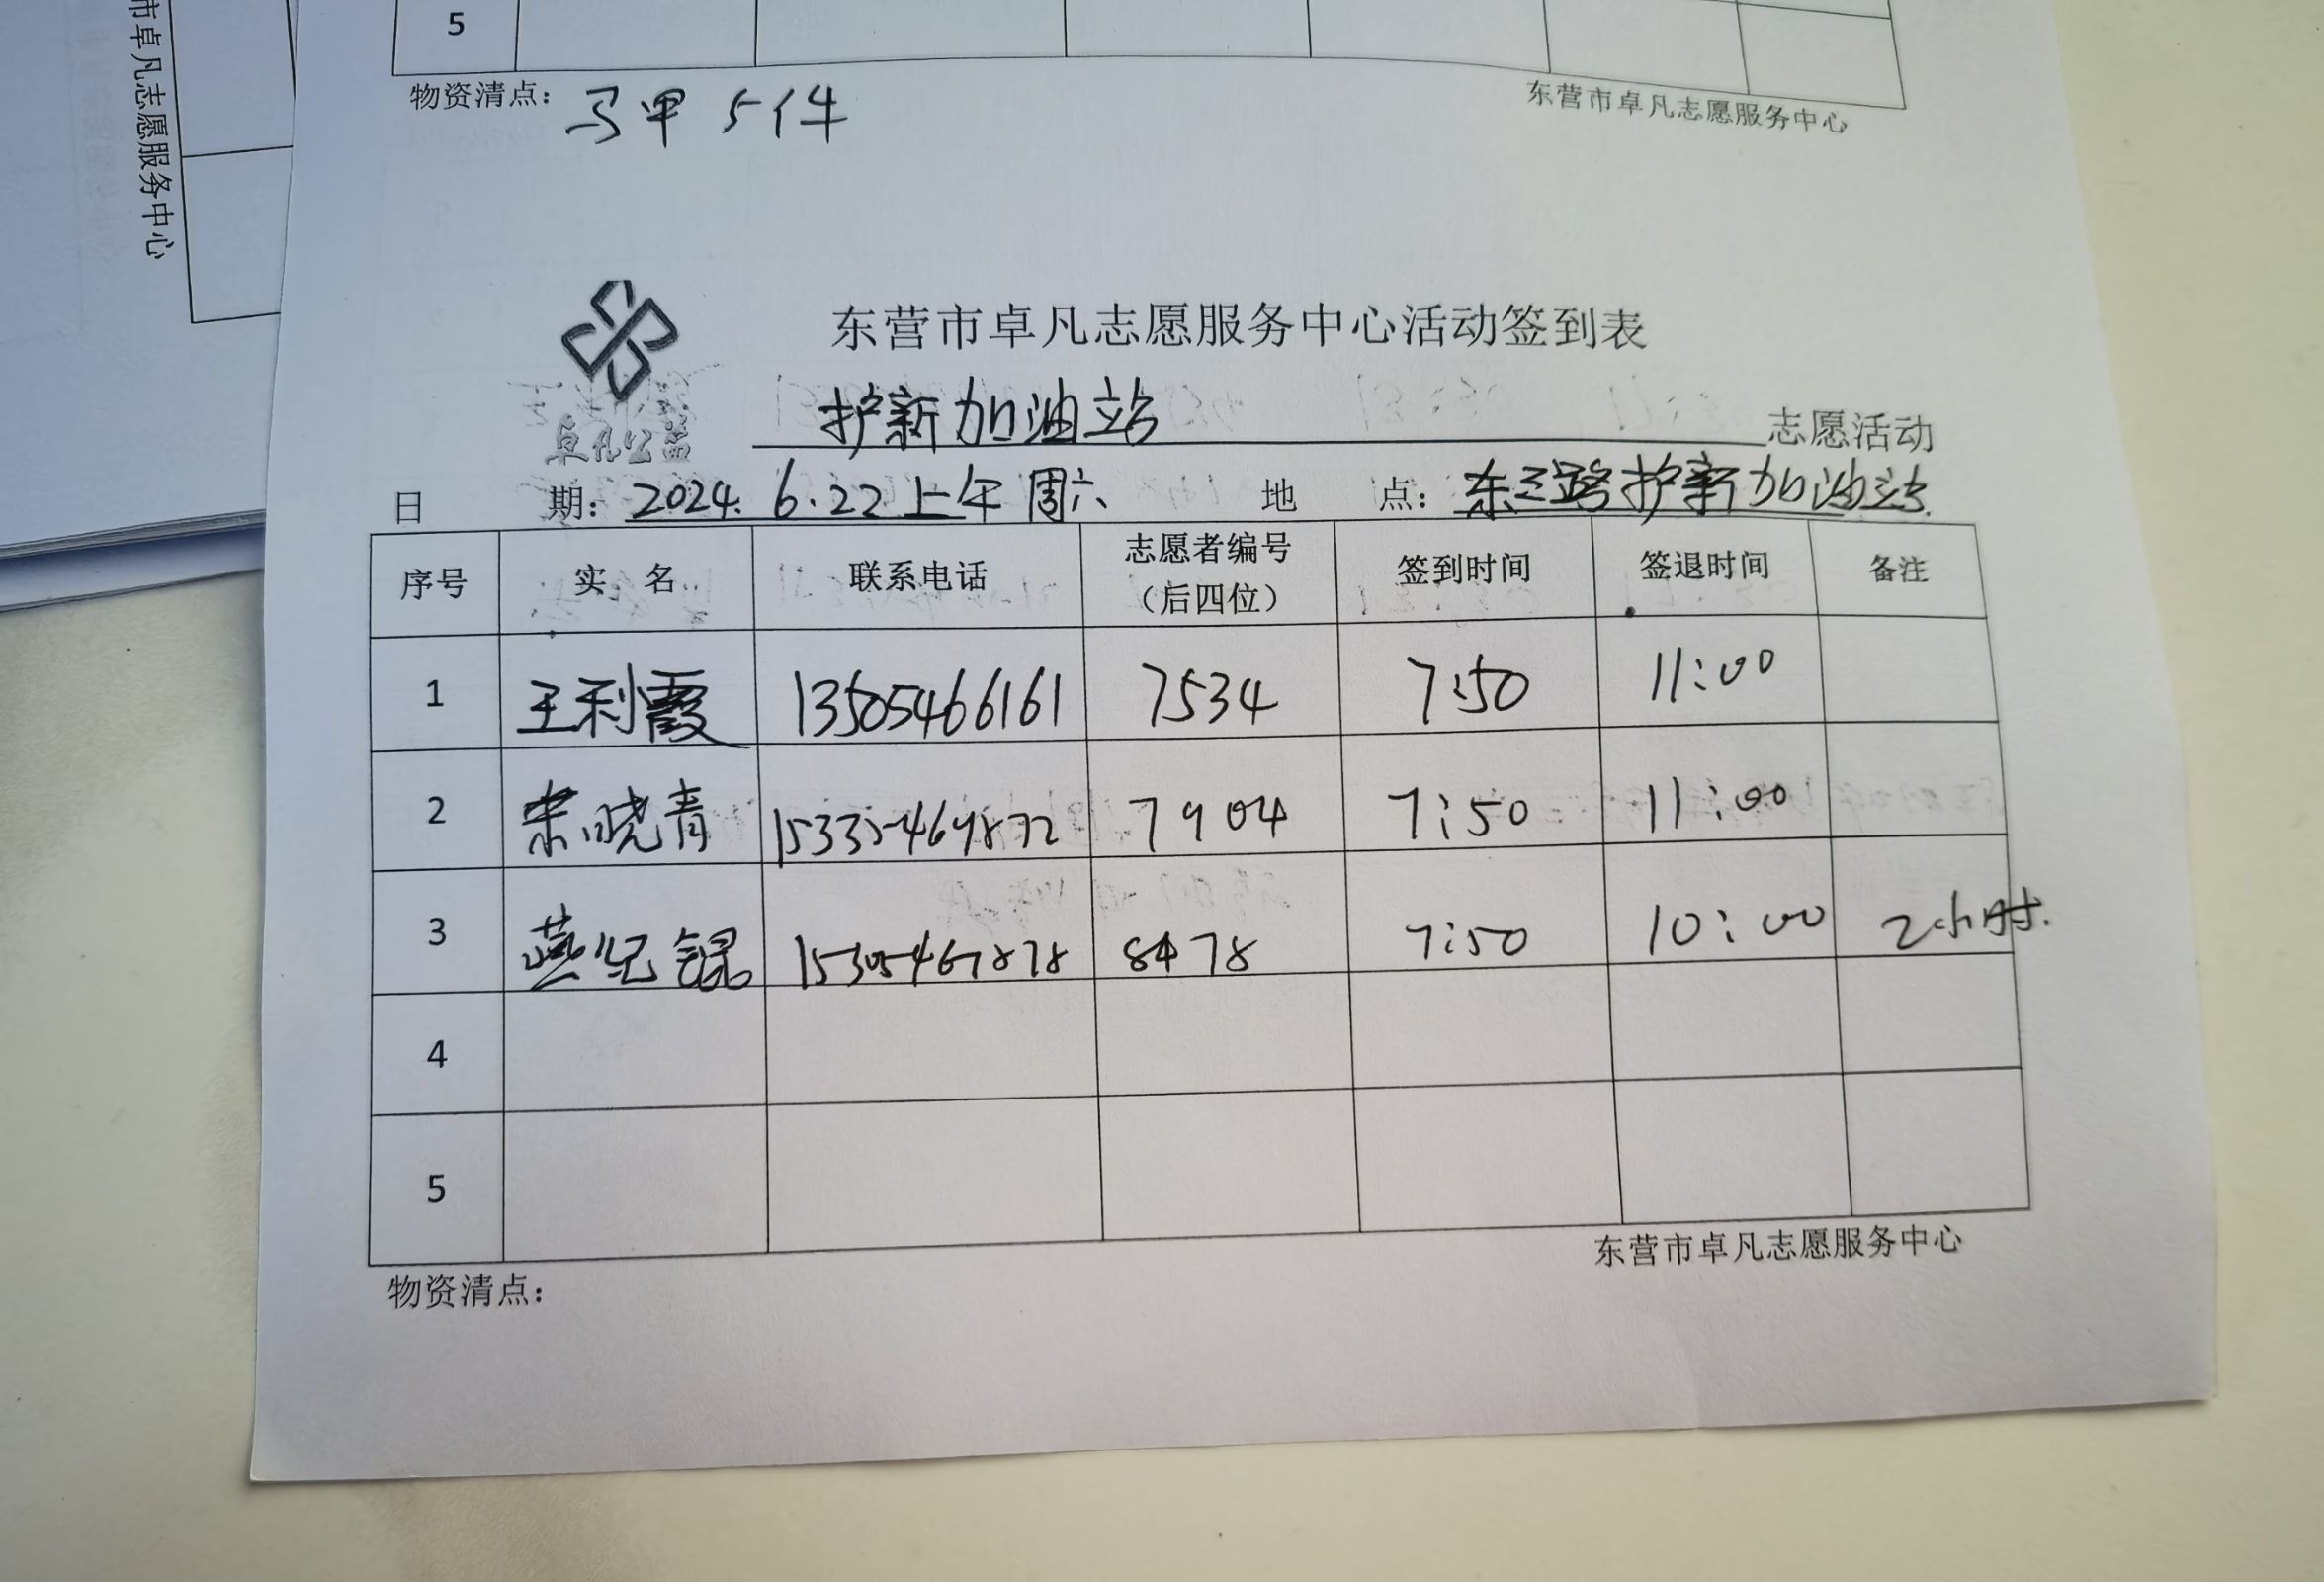 市卓凡志愿服务中心
5
物资清点： 马甲 5件
东营市卓凡志愿服务中心
东营市卓凡志愿服务中心活动签到表
卓凡公益
护新加油站 志愿活动
日 期： 2024. 6.22 上午 周六 地 点： 东三路护新加油站.
序号 实 名 联系电话 志愿者编号（后四位） 签到时间 签退时间 备注
1 王利霞 13505466161 7534 7:50 11:00
2 晓青 7904 7:50 11:00
3 燕纪锟 15305467878 8478 7:50 10:00 2小时.
4
5
东营市卓凡志愿服务中心
物资清点：